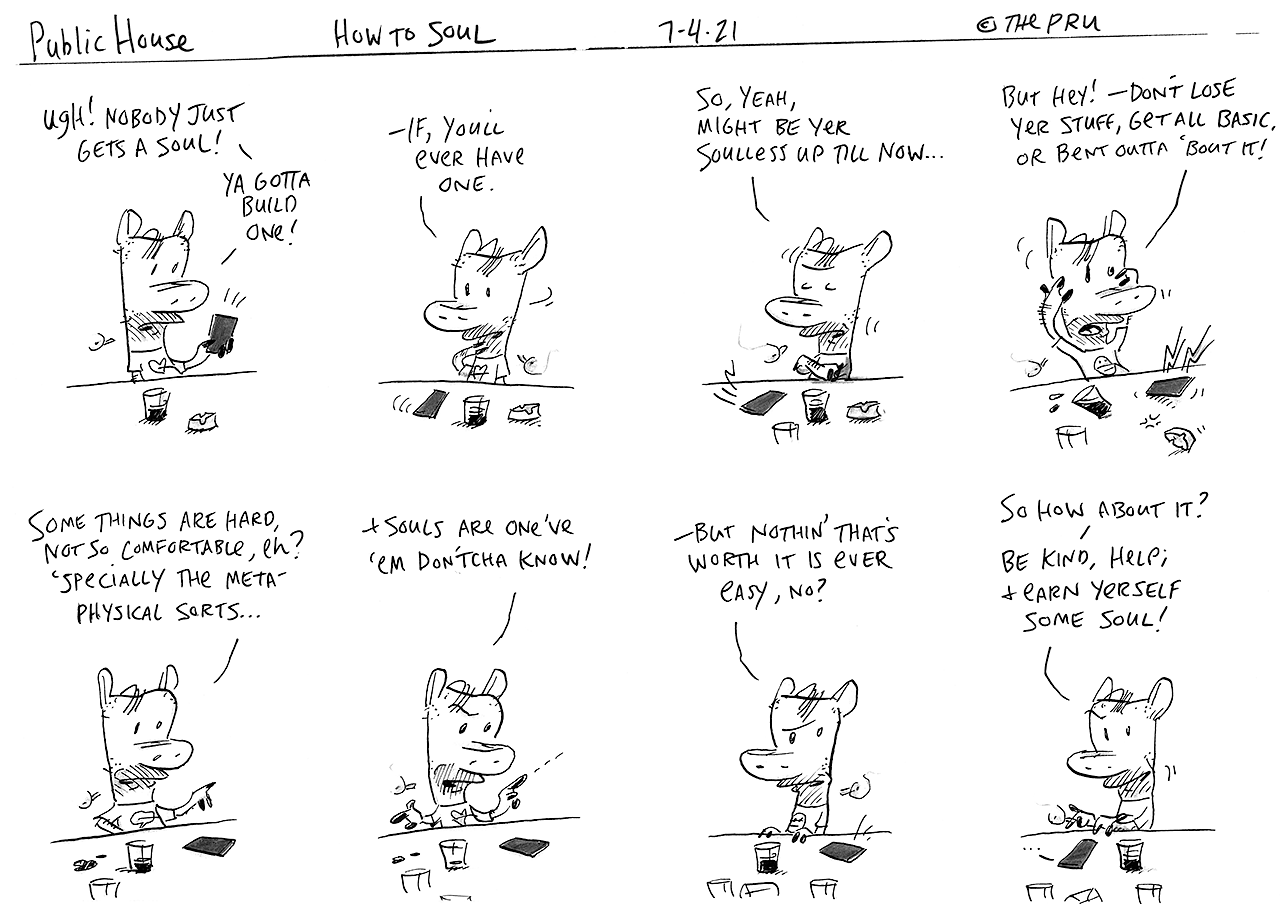 Public House
How to Soul
7-4-21
© The Pru
Ugh! Nobody just
gets a soul!
Ya gotta
build
one!
—If, you'll
ever have
one.
So, yeah,
might be yer
soulless up till now...
But hey! —Don't lose
yer stuff, get all basic,
or bent outta 'bout it!
Some things are hard,
not so comfortable, eh?
'Specially the meta-
physical sorts...
+ Souls are one've
'em don'tcha know!
—But nothin' that's
worth it is ever
easy, no?
So how about it?
Be kind, help,
+ earn yerself
some soul!